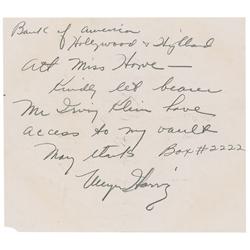 Bank of America
Hollywood & Highland
Att Miss Howe —
Kindly let bearer
Mr Irving Klein have
access to my vault
Many thanks Box #2222
Meyer Harris